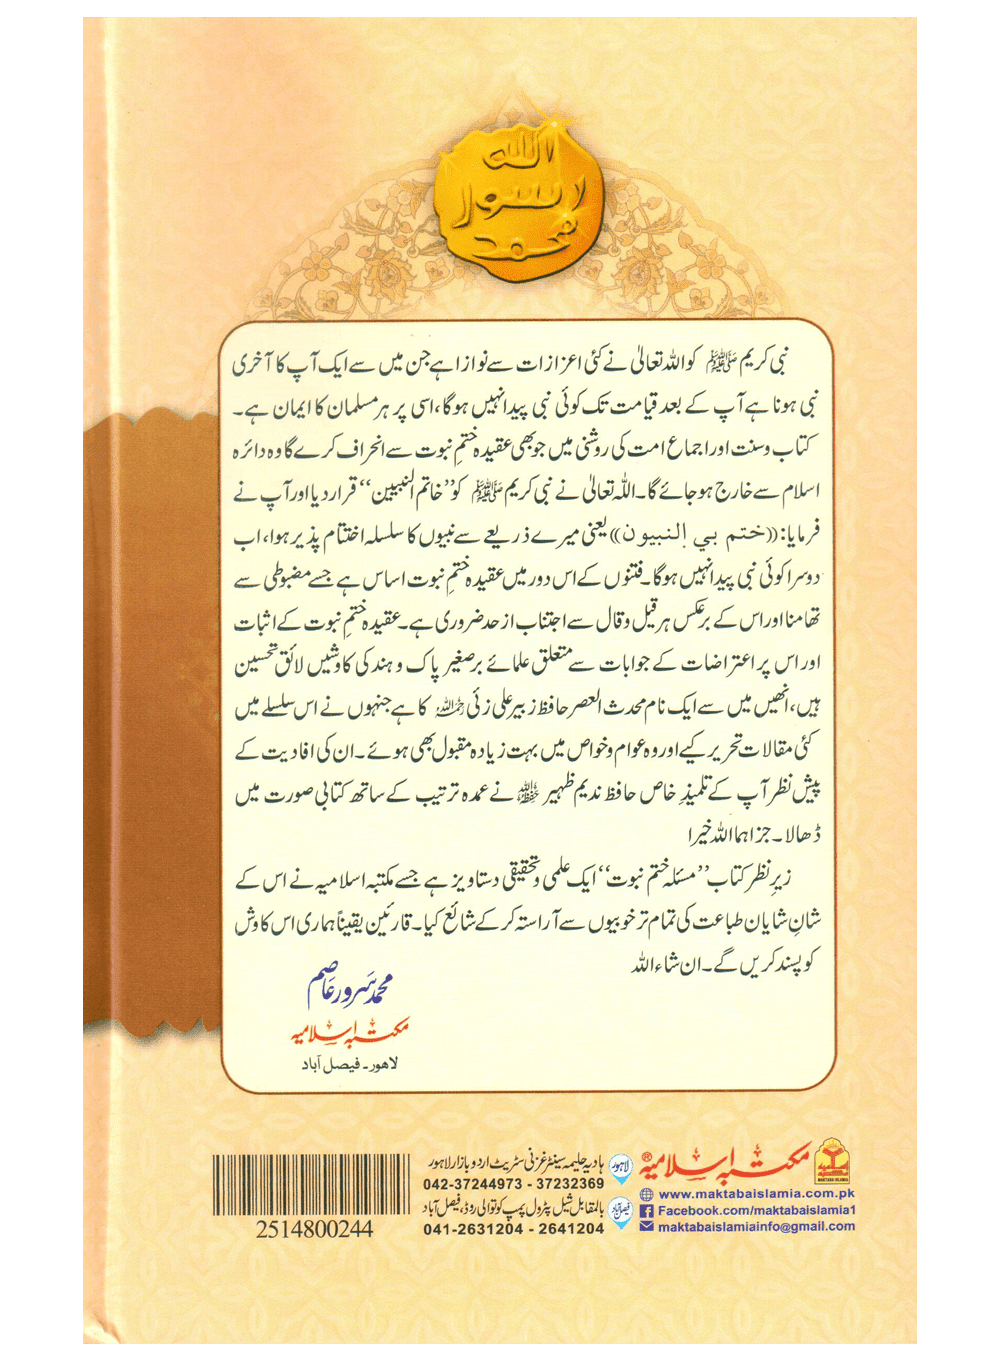 الله
رسول
محمد
نبی کریم ﷺ کو اللہ تعالیٰ نے کئی اعزازات سے نوازا ہے جن میں سے ایک آپ کا آخری
نبی ہونا ہے آپ کے بعد قیامت تک کوئی نبی پیدا نہیں ہوگا، اسی پر ہر مسلمان کا ایمان ہے۔
کتاب وسنت اور اجماع امت کی روشنی میں جو بھی عقیدہ ختمِ نبوت سے انحراف کرے گا وہ دائرہ
اسلام سے خارج ہو جائے گا۔ اللہ تعالیٰ نے نبی کریم ﷺ کو ”خاتم النبیین“ قرار دیا اور آپ نے
فرمایا: ((ختم بي النبيون)) یعنی میرے ذریعے سے نبیوں کا سلسلہ اختتام پذیر ہوا، اب
دوسرا کوئی نبی پیدا نہیں ہوگا۔ فتنوں کے اس دور میں عقیدہ ختمِ نبوت اساس ہے جسے مضبوطی سے
تھامنا اور اس کے برعکس ہر قیل وقال سے اجتناب از حد ضروری ہے۔ عقیدہ ختمِ نبوت کے اثبات
اور اس پر اعتراضات کے جوابات سے متعلق علمائے برصغیر پاک وہند کی کاوشیں لائق تحسین
ہیں، انھیں میں سے ایک نام محدث العصر حافظ زبیر علی زئی رحمہ اللہ کا ہے جنہوں نے اس سلسلے میں
کئی مقالات تحریر کیے اور وہ عوام وخواص میں بہت زیادہ مقبول بھی ہوئے۔ ان کی افادیت کے
پیش نظر آپ کے تلمیذِ خاص حافظ ندیم ظہیر حفظہ اللہ نے عمدہ ترتیب کے ساتھ کتابی صورت میں
ڈھالا۔ جزاہما اللہ خیرا
زیرِ نظر کتاب ”مسئلہ ختم نبوت“ ایک علمی وتحقیقی دستاویز ہے جسے مکتبہ اسلامیہ نے اس کے
شانِ شایان طباعت کی تمام تر خوبیوں سے آراستہ کر کے شائع کیا۔ قارئین یقیناً ہماری اس کاوش
کو پسند کریں گے۔ ان شاء اللہ
محمد سرور عاصم
مکتبہ اسلامیہ
لاہور۔ فیصل آباد
مکتبہ اسلامیہ®
MAKTABA ISLAMIA
www.maktabaislamia.com.pk
Facebook.com/maktabaislamia1
maktabaislamiainfo@gmail.com
لاہور
ہادیہ حلیمہ سینٹر غزنی سٹریٹ اردو بازار لاہور
042-37244973 - 37232369
فیصل آباد
بالمقابل شیل پٹرول پمپ کوتوالی روڈ، فیصل آباد
041-2631204 - 2641204
2514800244